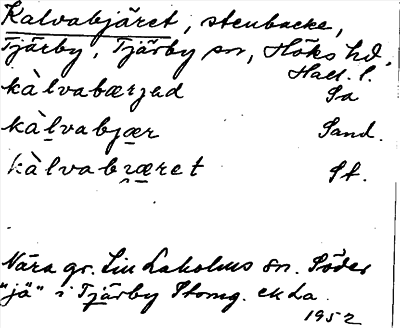 Kalvabjäret, stenbacke,
Tjärby, Tjärby sn, Höks hd,
Hall. l.
kàlvabærjad Sa
kàlvabjær Sand.
kàlvabræret St.
Nära gr. Lin Laholms sn. Söder
"jä" i Tjärby Stomg.
1952